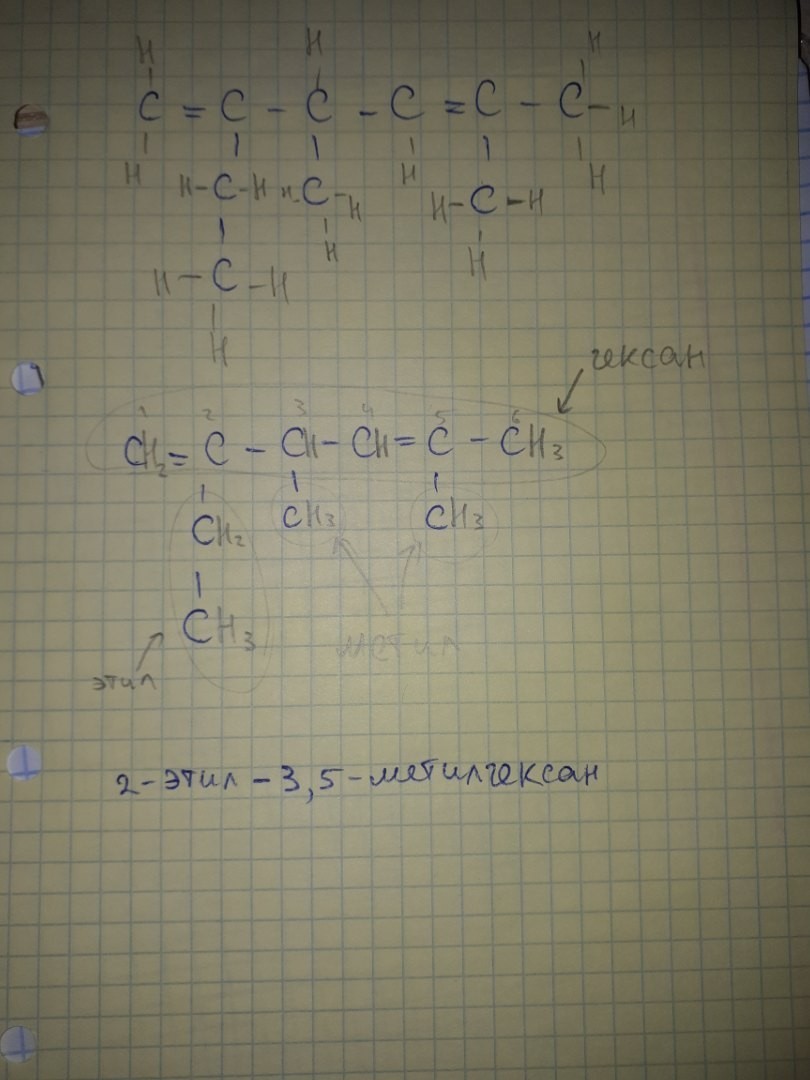 H H H
C = C - C - C = C - C - H
H H H
H-C-H H-C-H H-C-H
H H
H-C-H
H
гексан
1 2 3 4 5 6
CH₂ = C - CH - CH = C - CH₃
CH₂ CH₃ CH₃
CH₃
метил
этил
2-этил-3,5-метилгексан